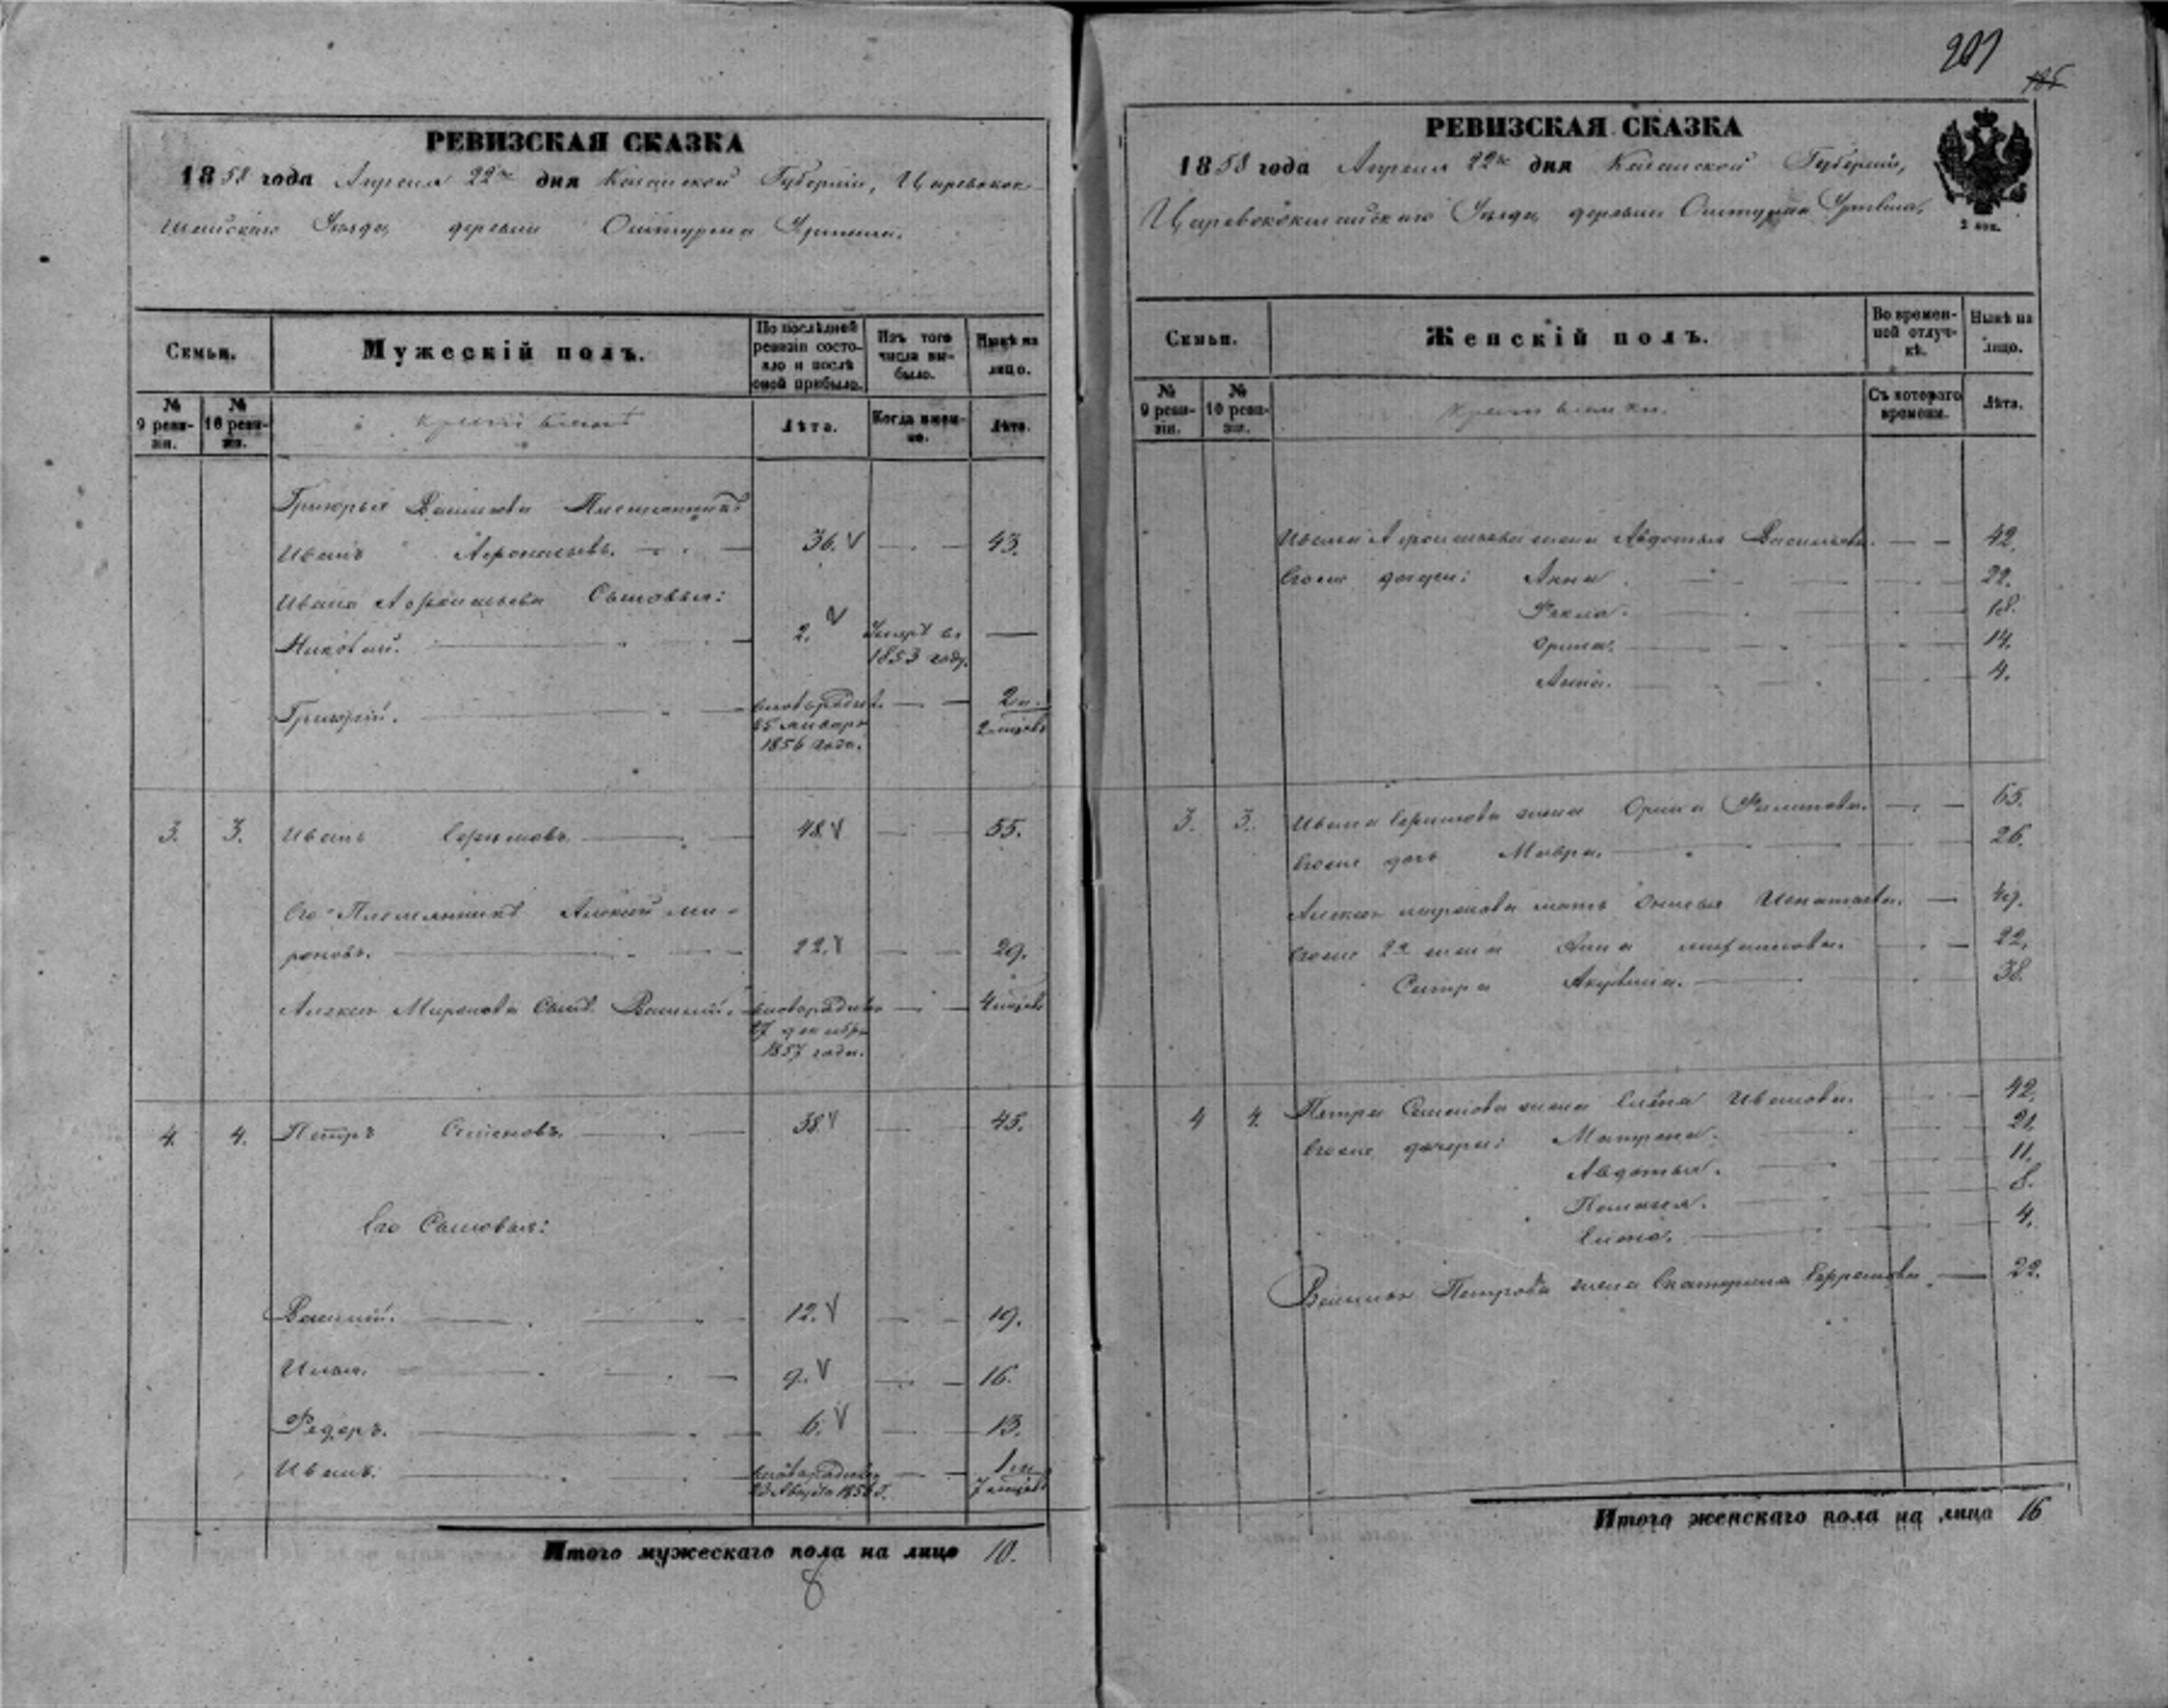 РЕВИЗСКАЯ СКАЗКА
1858 года Апреля 22го дня Казанской Губернии, Царевокок-
шайскаго Уезда, деревни
Семьи.
Мужескiй полъ.
По послѣдней ревизiи состо-яло и послѣ оной прибыло.
Изъ того числа вы-было.
Нынѣ на лицо.
№ 9 реви-зiи.
№ 10 реви-зiи.
Лѣта.
Когда имен-но.
Лѣта.
Григорья Васильева Племянникъ
Иванъ 36. 43.
Ивана Сыновья:
Николай. 2. Умеръ въ 1853 году.
Григорiй. вновьрожден. 25 января 1856 года. 2 г. 2 месяца
3. 3. Иванъ 48 55.
Его Племянникъ Алексей Ми-
роновъ. 22. 29.
Алексея Миронова Сынъ Василiй. вновьрожден 27 декабря 1857 года. 4 месяца
4. 4. Петръ Семеновъ. 38 45.
Его Сыновья:
Василiй. 12. 19.
Илья. 9. 16.
Федоръ. 6. 13.
Иванъ. вновьрожден Августа 1856 г. 1 г. 7 месяцев
Итого мужескаго пола на лицо 10.
8
201
РЕВИЗСКАЯ СКАЗКА
1858 года Апреля 22го дня Казанской Губернии,
Царевококшайскаго Уезда, деревни
2 коп.
Семьи.
Женскiй полъ.
Во времен-ной отлуч-кѣ.
Нынѣ на лицо.
№ 9 реви-зiи.
№ 10 реви-зiи.
Крестьянки.
Съ котораго времени.
Лѣта.
Ивана жена Авдотья Васильева. 42.
Его же дочери: Анна 22.
Фекла. 18.
Орина. 14.
Анна. 4.
3. 3. Ивана жена Орина 65.
Его же дочь Мавра. 26.
Алексея Миронова мать Игнатьева. 49.
Его же 2я жена Анна 22.
Сестра Акулина. 38.
4 4. Петра Семенова жена Елена Иванова. 42.
Его же дочери: Матрена. 21.
Авдотья. 11.
Пелагея. 8.
Елена. 4.
Василья Петрова жена Екатерина Ефремова 22.
Итого женскаго пола на лицо 16